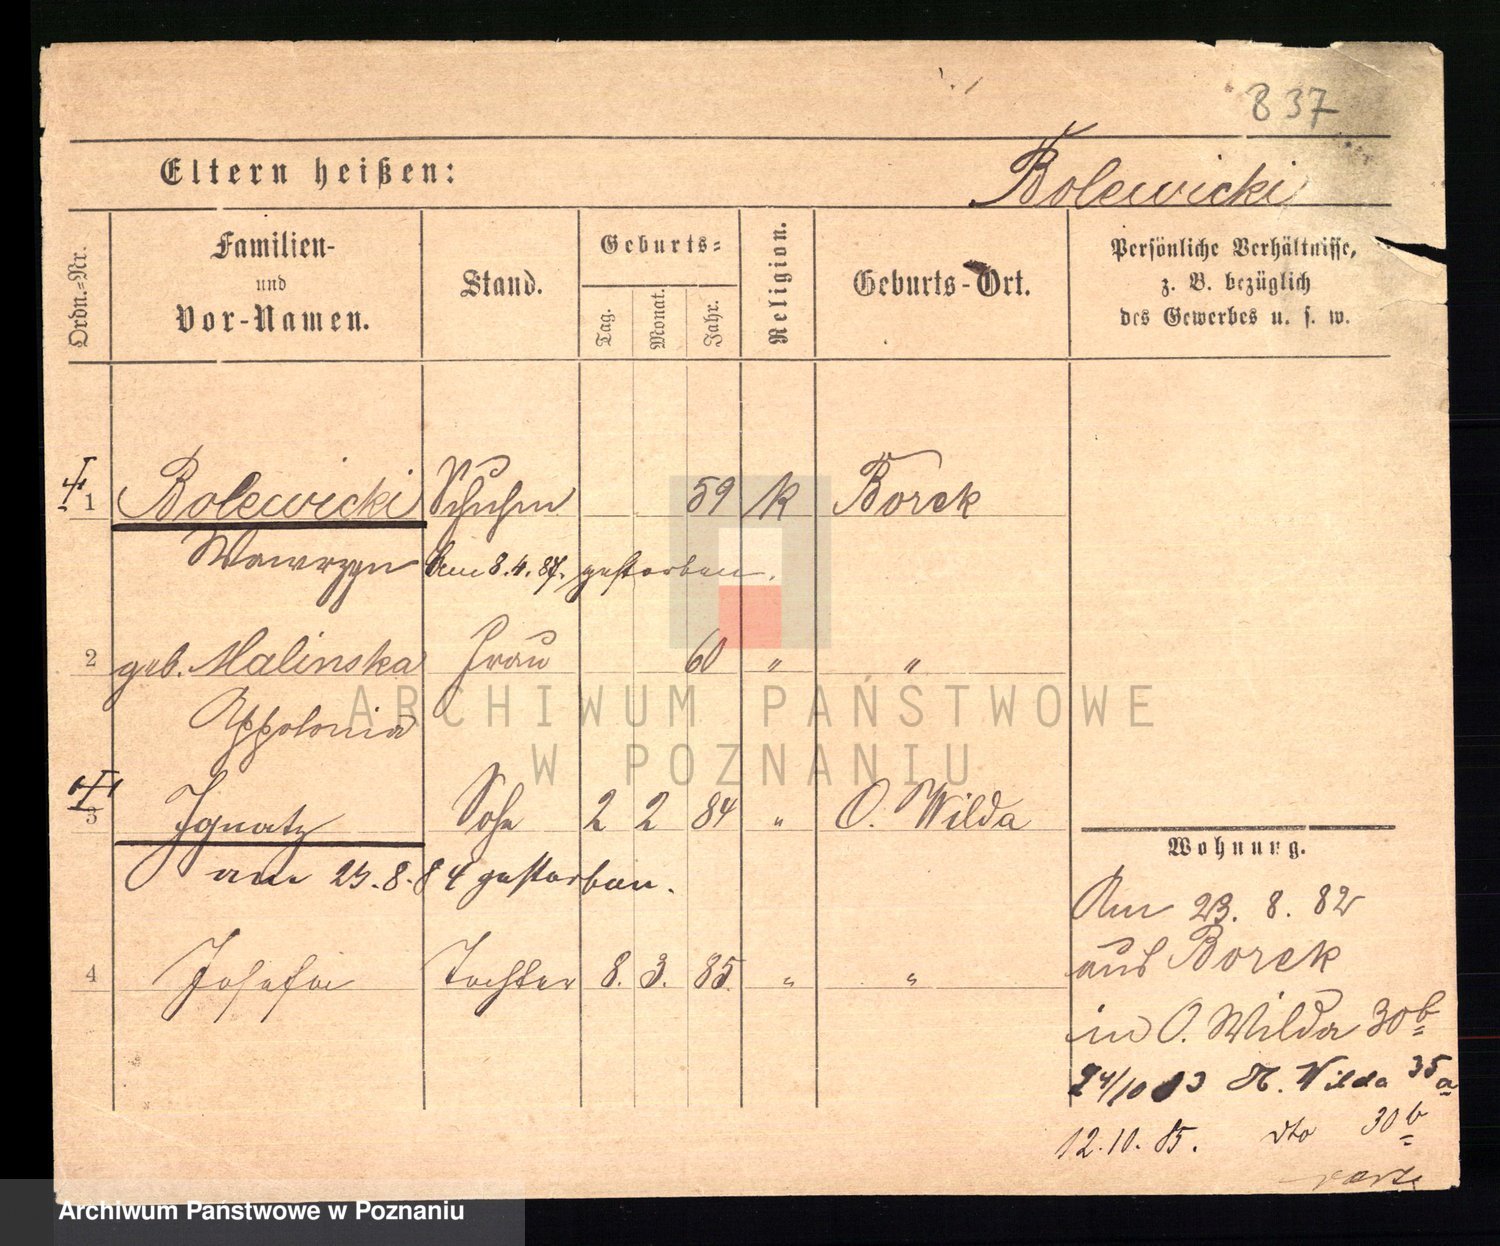 837
Eltern heißen:
Bolewicki
Ordn.-Nr.
Familien-
und
Vor-Namen.
Stand.
Geburts-
Tag.
Monat.
Jahr.
Religion.
Geburts-Ort.
Persönliche Verhältnisse,
z. B. bezüglich
des Gewerbes u. s. w.
1 Bolewicki Schuhm 59 k Borek
Wawrzyn Am 8.4.87. gestorben.
2 geb. Malinska Frau 60 " "
Appolonia
3 Ignatz Sohn 2 2 84 " O. Wilda
am 25.8.84 gestorben.
4 Josefa Tochter 8. 3. 85 " "
Wohnung.
Am 23. 8. 82
aus Borek
in O. Wilda 30b
24/10 83 Wilda 35a
12.10.85. dto 30b
ARCHIWUM PAŃSTWOWE
W POZNANIU
Archiwum Państwowe w Poznaniu